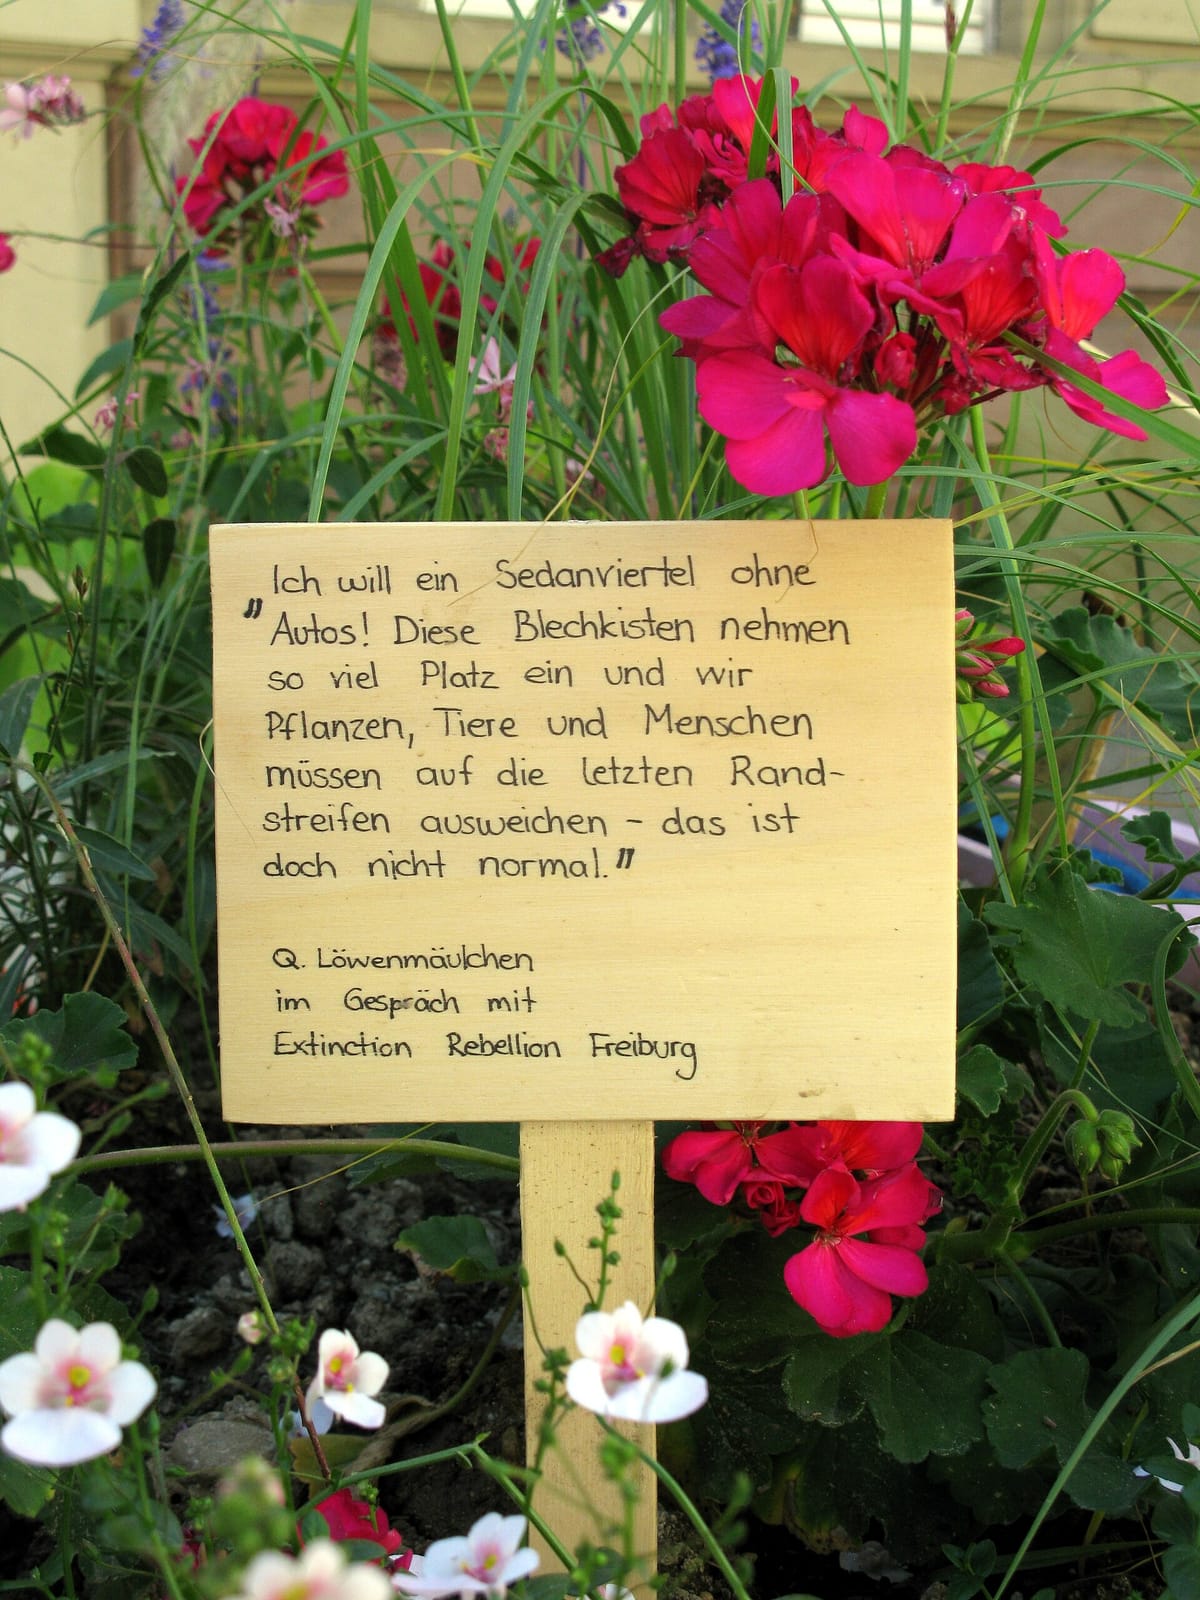 Ich will ein Sedanviertel ohne
"Autos! Diese Blechkisten nehmen
so viel Platz ein und wir
Pflanzen, Tiere und Menschen
müssen auf die letzten Rand-
streifen ausweichen - das ist
doch nicht normal."
Q. Löwenmäulchen
im Gespräch mit
Extinction Rebellion Freiburg